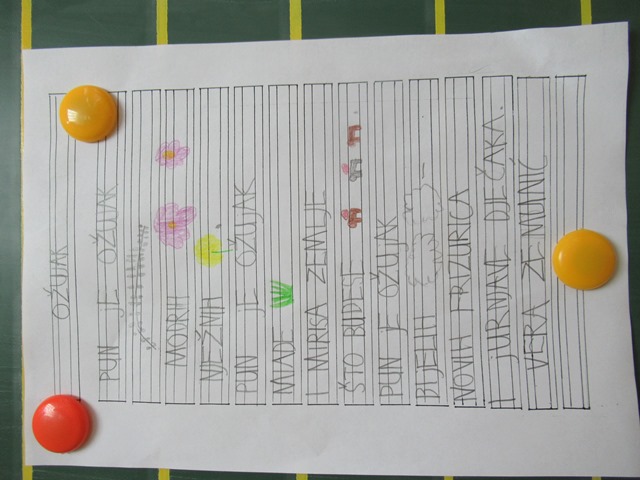 OŽUJAK
PUN JE OŽUJAK
MODRIH
NJEŽNIH
PUN JE OŽUJAK
MLADE
I MIRISA ZEMLJE
ŠTO BUDESE
PUN JE OŽUJAK
BIJELIH
NOVIH FRIZURICA
I JURNJAVE DJEČAKA.
VERA ZEMUNIĆ